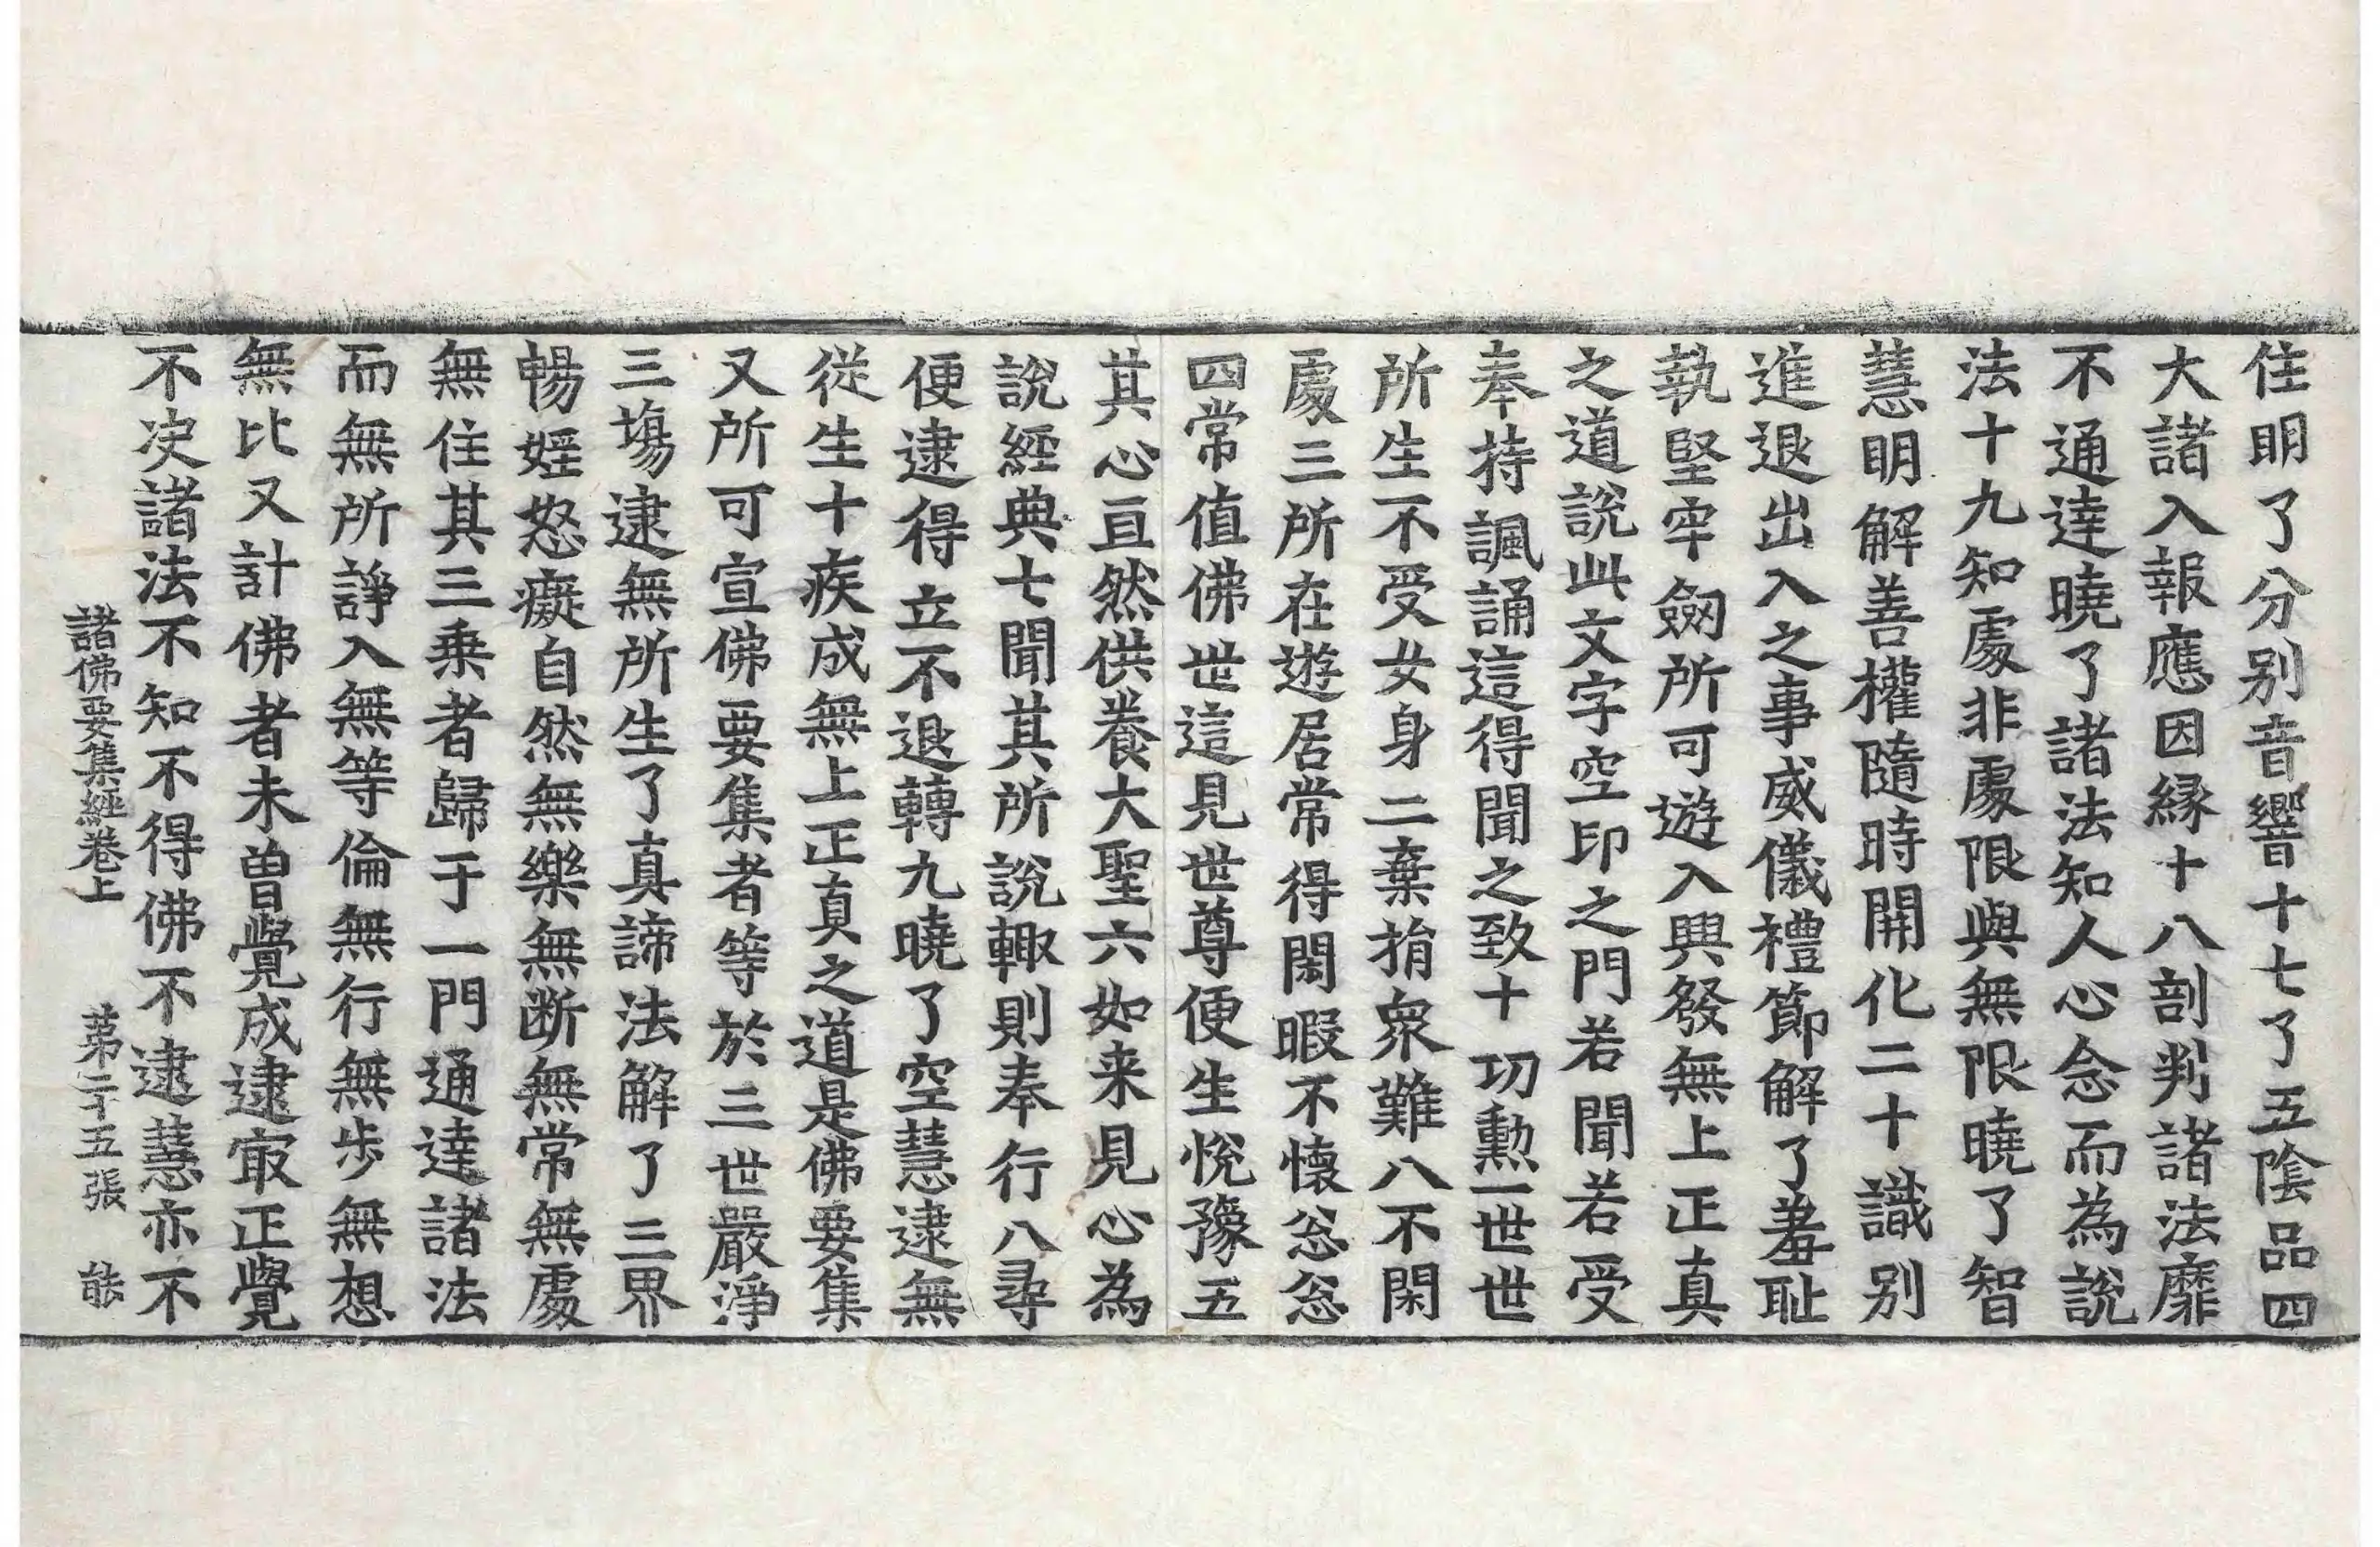 住明了分别音響十七了五陰品四
大諸入報應因縁十八剖判諸法靡
不通達曉了諸法知人心念而為說
法十九知處非處限與無限曉了智
慧明解善權隨時開化二十識别
進退出入之事威儀禮節解了羞耻
執堅牢劒所可遊入興發無上正真
之道說此文字空印之門若聞若受
奉持諷誦這得聞之致十功勲一世世
所生不受女身二棄捐衆難八不閑
處三所在遊居常得閑暇不懷忩忩
四常值佛世這見世尊便生悅豫五
其心亘然供養大聖六如来見心為
說經典七聞其所說輙則奉行八尋
便逮得立不退轉九曉了空慧逮無
從生十疾成無上正真之道是佛要集
又所可宣佛要集者等於三世嚴淨
三塲逮無所生了真諦法解了三界
暢婬怒癡自然無樂無断無常無處
無住其三乗者歸于一門通達諸法
而無所諍入無等倫無行無步無想
無比又計佛者未曽覺成逮㝡正覺
不决諸法不知不得佛不逮慧亦不
諸佛要集經卷上 第二十五張 能